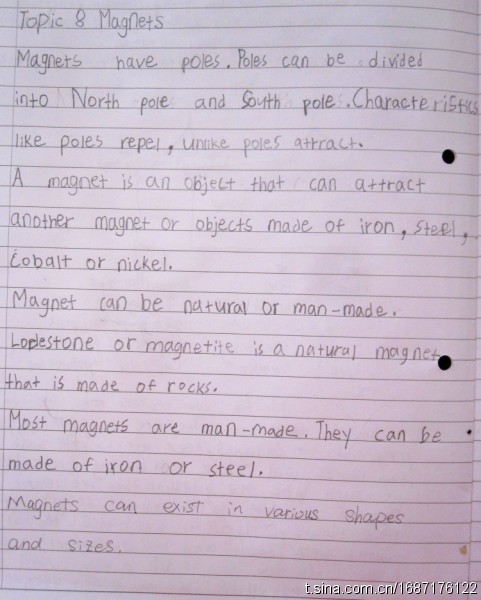 Topic 8 Magnets
Magnets have poles. Poles can be divided
into North pole and South pole. Characteristics
like poles repel, unlike poles attract.
A magnet is an object that can attract
another magnet or objects made of iron, steel,
cobalt or nickel.
Magnet can be natural or man-made.
Lodestone or magnetite is a natural magnet
that is made of rocks.
Most magnets are man-made. They can be
made of iron or steel.
Magnets can exist in various shapes
and sizes.
t.sina.com.cn/1687176122